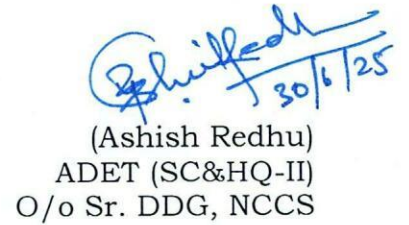 30/6/25
(Ashish Redhu)
ADET (SC&HQ-II)
O/o Sr. DDG, NCCS